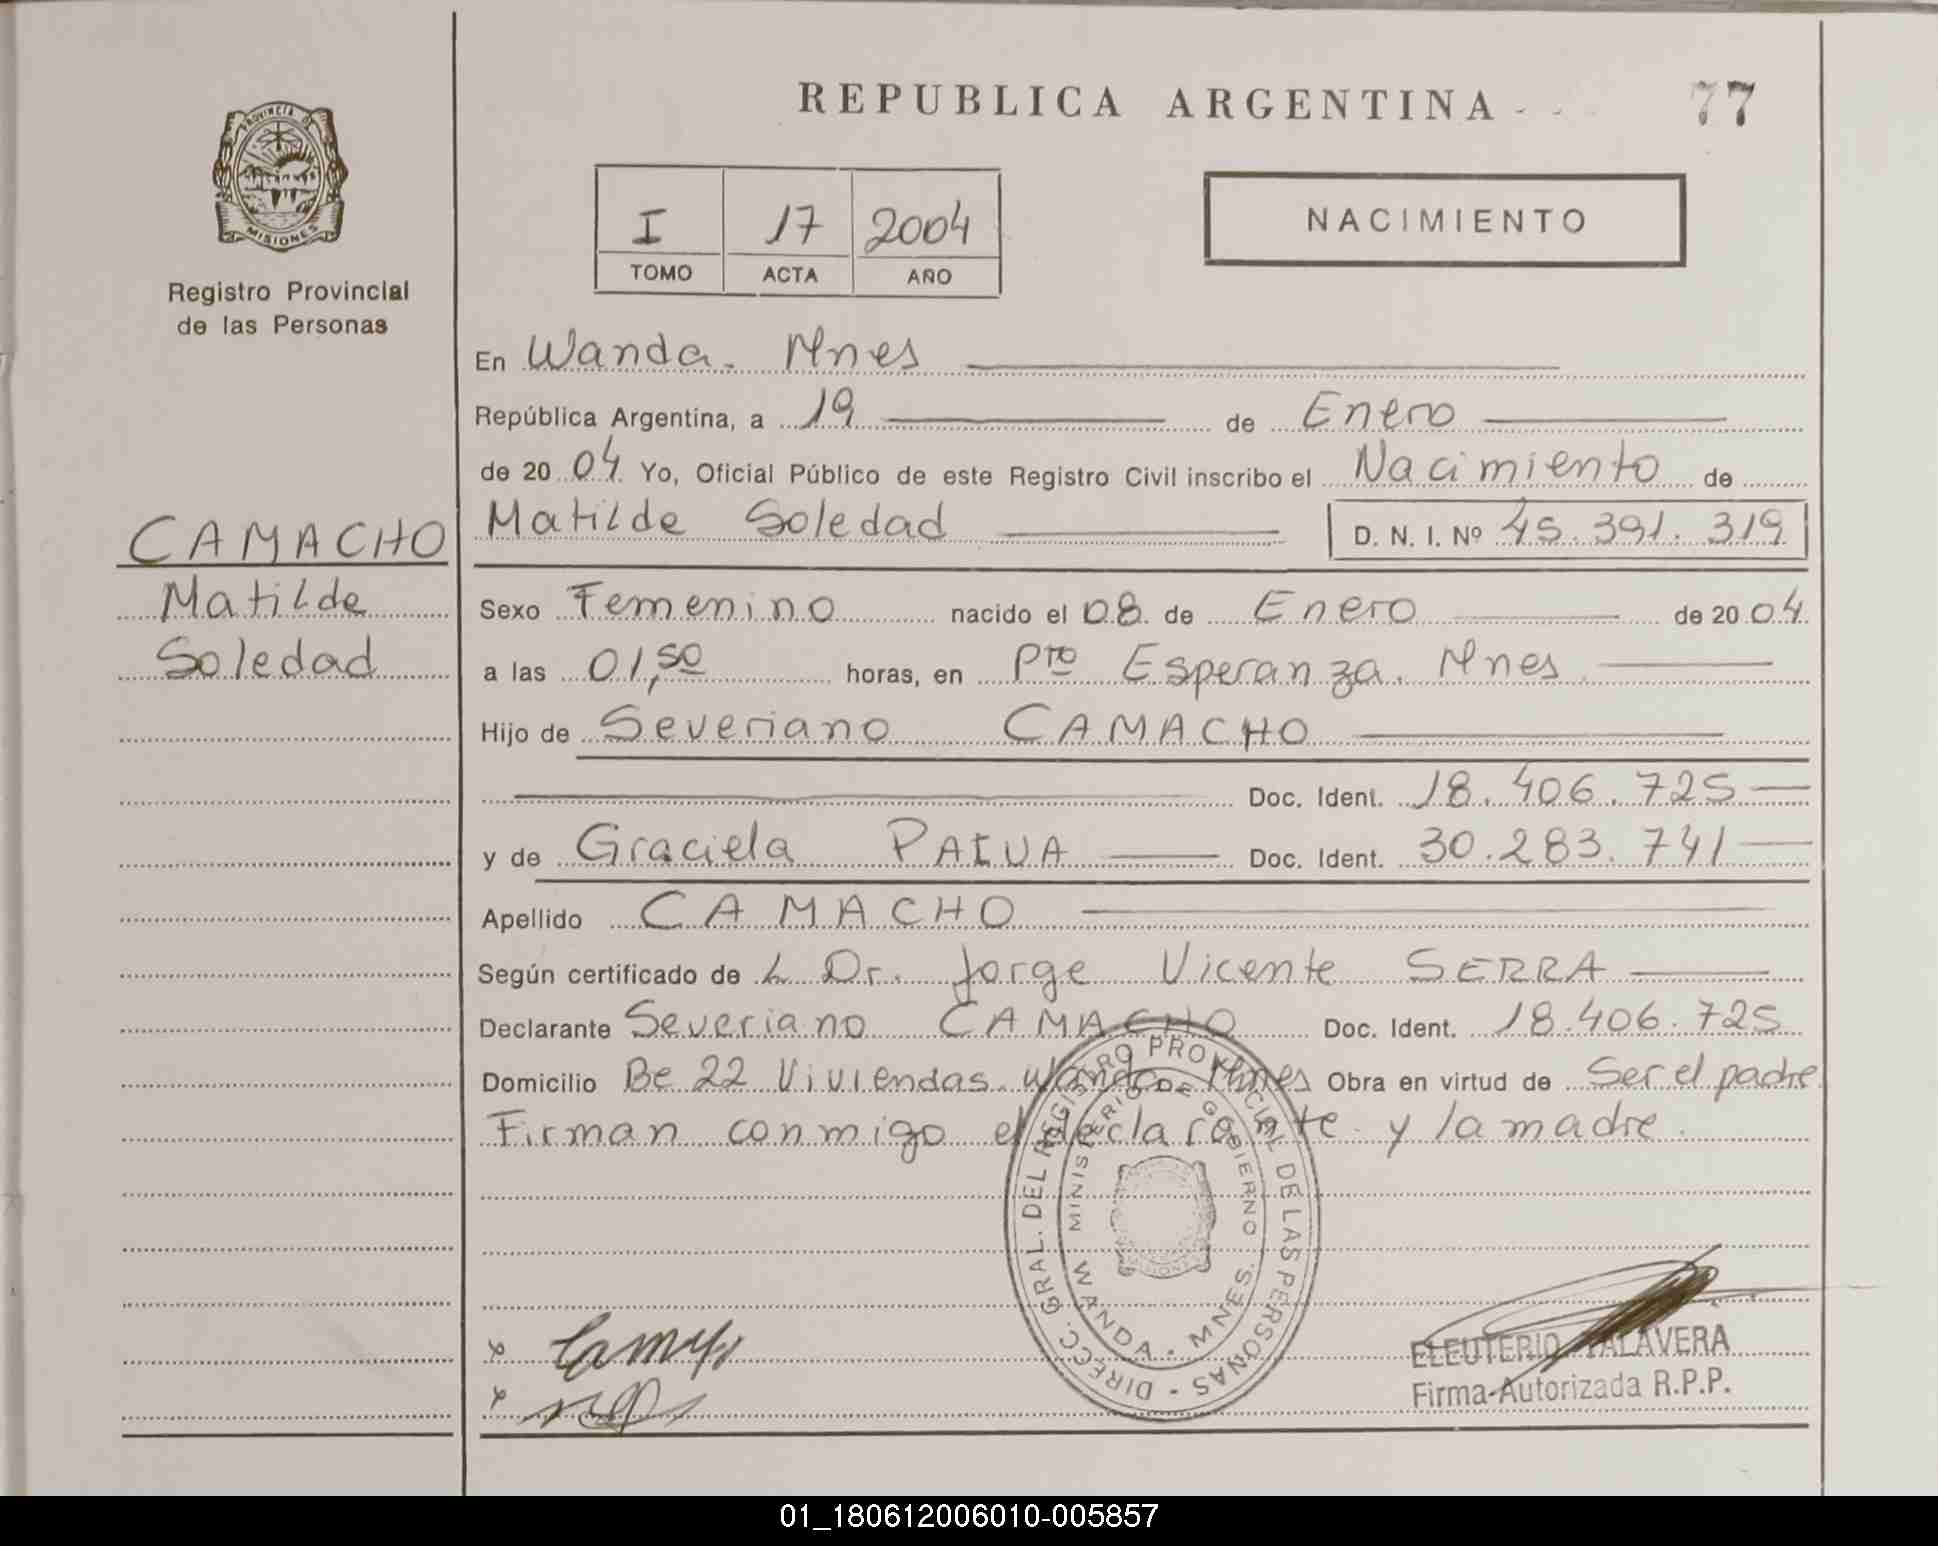 REPUBLICA ARGENTINA
77
PROVINCIA DE
MISIONES
Registro Provincial
de las Personas
I 17 2004
TOMO ACTA AÑO
NACIMIENTO
En Wanda. Mnes
República Argentina, a 19 de Enero
de 20 04 Yo, Oficial Público de este Registro Civil inscribo el Nacimiento de
CAMACHO
Matilde
Soledad
Matilde Soledad D. N. I. Nº 45.391.319
Sexo Femenino nacido el 08 de Enero de 20 04
a las 01,50 horas, en Pto Esperanza. Mnes
Hijo de Severiano CAMACHO
Doc. Ident. 18.406.725
y de Graciela PAIVA Doc. Ident. 30.283.741
Apellido CAMACHO
Según certificado de Dr. Jorge Vicente SERRA
Declarante Severiano CAMACHO Doc. Ident. 18.406.725
Domicilio Be 22 Viviendas. Wanda. Mnes Obra en virtud de Ser el padre.
Firman conmigo el declarante y la madre.
DIRECC. GRAL. DEL REGISTRO PROVINCIAL DE LAS PERSONAS -
MINISTERIO DE GOBIERNO
WANDA - MNES.
ELEUTERIO TALAVERA
Firma Autorizada R.P.P.
01_180612006010-005857